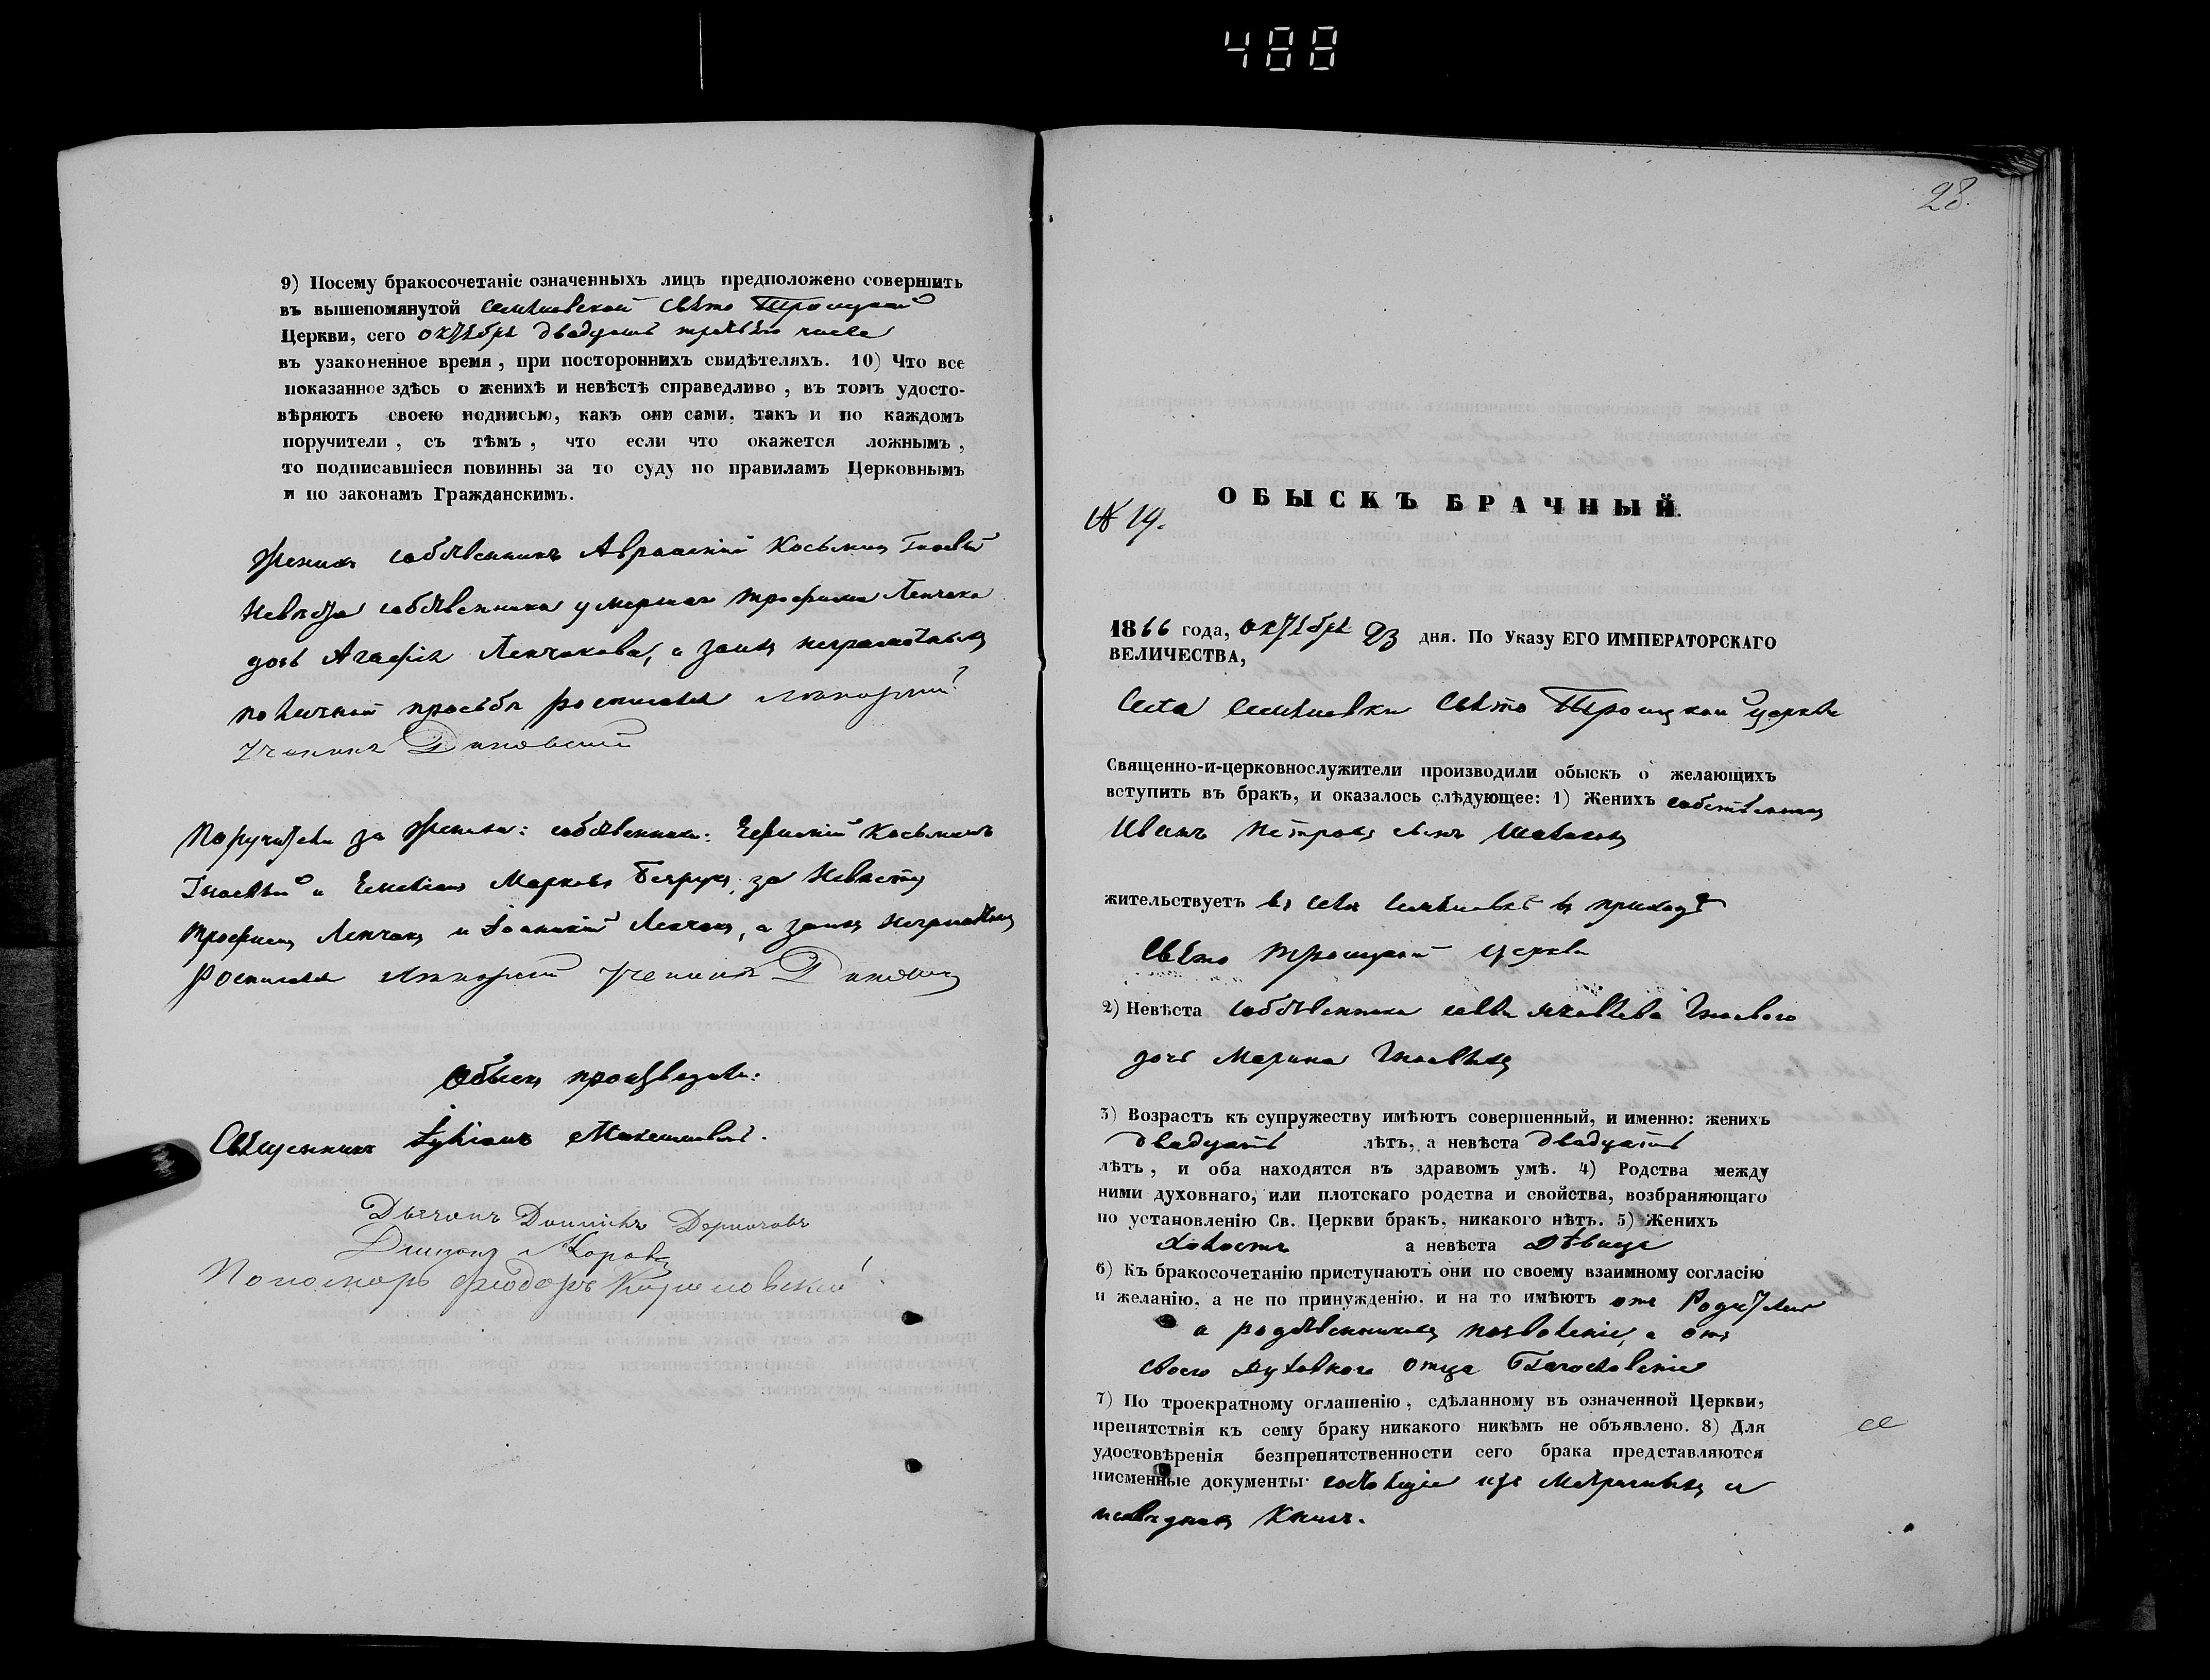 488
9) Посему бракосочетаніе означенныхъ лицъ предположено совершить
въ вышепомянутой Свято Троицкой
Церкви, сего октября двадцать третьяго числа
въ узаконенное время, при постороннихъ свидѣтеляхъ. 10) Что все
показанное здѣсь о женихѣ и невѣстѣ справедливо, въ томъ удосто-
вѣряютъ своею подписью, какъ они сами, такъ и по каждомъ
поручители, съ тѣмъ, что если что окажется ложнымъ,
то подписавшіеся повинны за то суду по правиламъ Церковнымъ
и по законамъ Гражданскимъ.
Женихъ собственникъ Косьминъ Гноевый
Невѣста собственника умершаго Трофима Ленчака
дочь Агафія Ленчакова, а за нихъ неграмотныхъ
по личной просьбѣ росписался
Поручители за Жениха: собственники: Косьминъ
Гноевый и Марковъ за Невѣсту
Трофимъ Ленчакъ и Іоаникій Ленчакъ, а за нихъ неграмотныхъ
росписался
Обыскъ производили:
Священникъ Лукіанъ
Дьячокъ
Пономарь Феодоръ
28.
ОБЫСКЪ БРАЧНЫЙ.
№ 19.
1866 года, октября 23 дня. По Указу ЕГО ИМПЕРАТОРСКАГО
ВЕЛИЧЕСТВА,
Села Свято Троицкой церкви
Священно-и-церковнослужители производили обыскъ о желающихъ
вступить въ бракъ, и оказалось слѣдующее: 1) Женихъ собственникъ
Иванъ Петровъ сынъ
жительствуетъ въ селѣ въ приходѣ
Свято Троицкой церкви
2) Невѣста собственника Саввы Яковлева Гноевого
дочь Марина
3) Возрастъ къ супружеству имѣютъ совершенный, и именно: женихъ
двадцать лѣтъ, а невѣста двадцать
лѣтъ, и оба находятся въ здравомъ умѣ. 4) Родства между
ними духовнаго, или плотскаго родства и свойства, возбраняющаго
по установленію Св. Церкви бракъ, никакого нѣтъ. 5) Женихъ
холостъ а невѣста дѣвица
6) Къ бракосочетанію приступаютъ они по своему взаимному согласію
и желанію, а не по принужденію, и на то имѣютъ отъ Родителей
и родственниковъ позволеніе, а отъ
своего духовнаго отца благословеніе
7) По троекратному оглашенію, сдѣланному въ означенной Церкви,
препятствія къ сему браку никакого никѣмъ не объявлено. 8) Для
удостовѣренія безпрепятственности сего брака представляются
писменные документы: изъ Метричныхъ и
исповѣдныхъ книгъ.